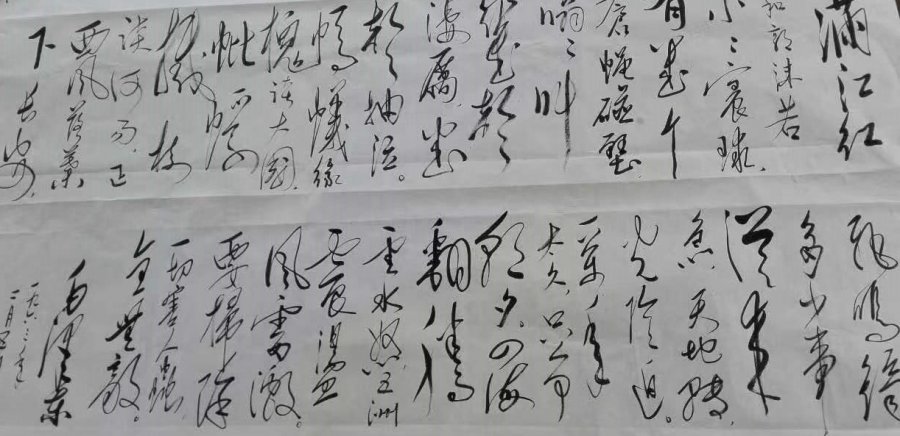 滿江红
和郭沫若
小小寰球，
有几个
苍蝇碰壁
嗡嗡叫
凄厉，几
声抽泣。
蚂蚁缘
槐夸大国，
蚍蜉
撼树
谈何易。正
西风落葉
下长安，
飞鸣镝
多少事
从来
急。天地转，
光阴迫。
一万年
太久，只争
朝夕。四海
翻腾
云水怒，五洲
震荡
风雷激。
要扫除
一切害人虫
全無敌。
毛泽东